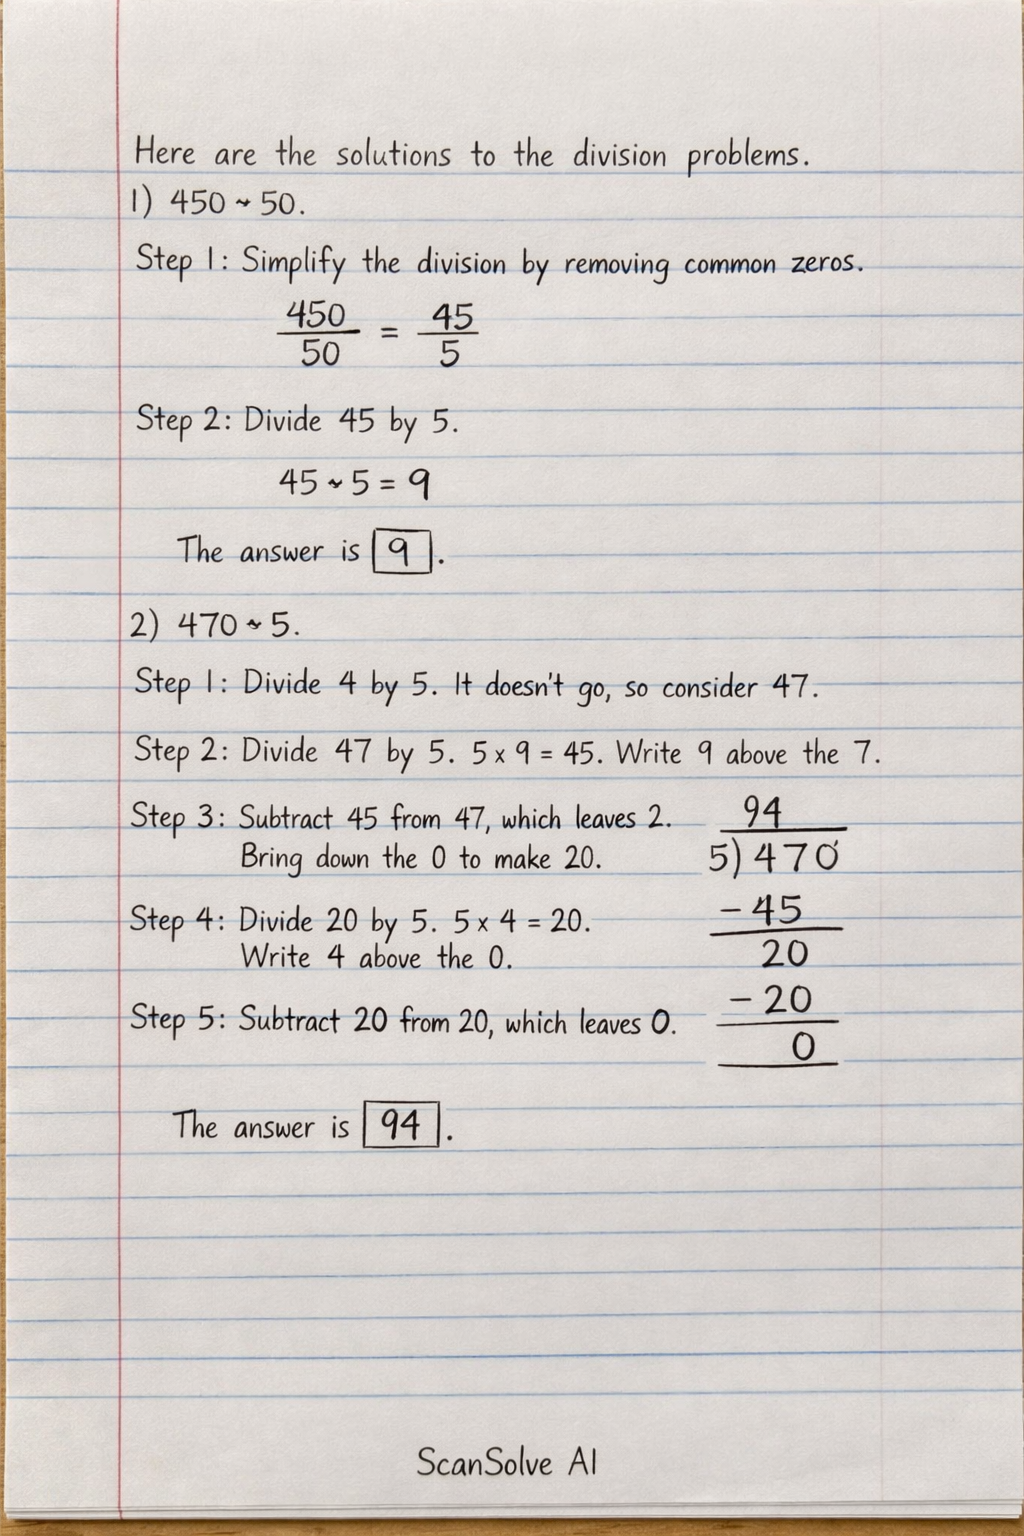 Here are the solutions to the division problems.
1) 450 ~ 50.
Step 1: Simplify the division by removing common zeros.
450/50 = 45/5
Step 2: Divide 45 by 5.
45 ~ 5 = 9
The answer is 9.
2) 470 ~ 5.
Step 1: Divide 4 by 5. It doesn't go, so consider 47.
Step 2: Divide 47 by 5. 5 x 9 = 45. Write 9 above the 7.
Step 3: Subtract 45 from 47, which leaves 2.
Bring down the 0 to make 20.
Step 4: Divide 20 by 5. 5 x 4 = 20.
Write 4 above the 0.
Step 5: Subtract 20 from 20, which leaves 0.
94
5)470
-45
20
-20
0
The answer is 94.
ScanSolve AI